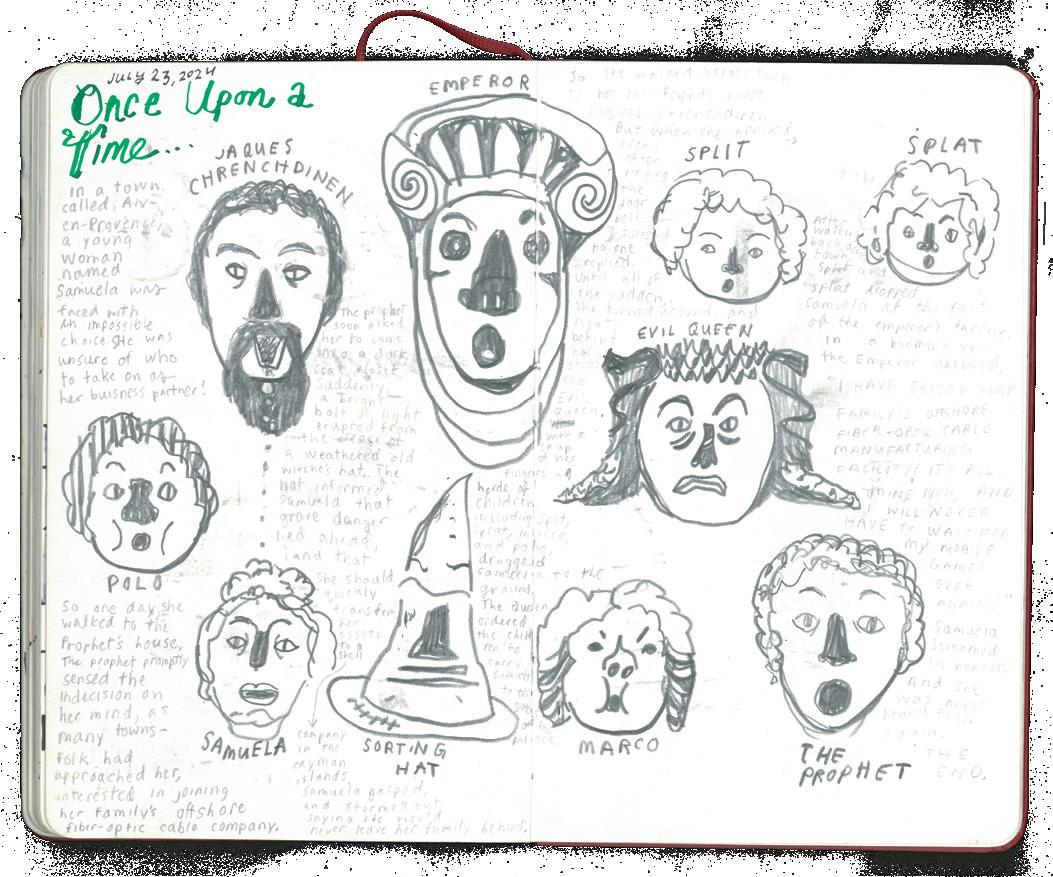 July 23, 2024
Once Upon a
Time...
in a town
called Aix-
en-Provence,
a young
woman
named
Samuela was
faced with
an impossible
choice. She was
unsure of who
to take on as
her buisness partner!
JAQUES
CHRENCHDINEN
EMPEROR
SPLIT
SPLAT
EVIL QUEEN
POLO
SAMUELA
SORTING
HAT
MARCO
THE
PROPHET
So one day she
walked to the
Prophet's house.
The prophet promptly
sensed the
indecision on
her mind, as
many towns-
folk had
approached her,
interested in joining
her family's offshore
fiber-optic cable company.
The prophet
soon asked
her to come
into a dark
coat closet
Suddenly
a bright
bolt of light
erupted from
the
a weathered old
witche's hat. The
hat informed
Samuela that
grave danger
lied ahead,
and that
she should
quickly
transfer
assets
to a
shell
company
in the
cayman
islands.
Samuela gasped,
and stormed out,
saying she would
never leave her family behind.
So she walked across town
to her best friend's house
But when she arrived,
no one
replied.
Until all of
the sudden,
she turned around, and
right
behind
The
Evil
Queen,
with a
snap
of her
fingers a
horde of
children
including Split,
Splat, Marco,
and Polo,
dragged
Samuela to the
ground.
The Queen
ordered
the child
ren to
carry
palace.
After
town,
Splat and
splat dropped
Samuela at the foot
of the emperor's throne.
In a booming voice
the Emperor declared,
"I HAVE SEIZED YOUR
FAMILY'S OFFSHORE
FIBER-OPTIC CABLE
MANUFACTURING
FACILITY! IT'S ALL
MINE NOW, AND
I WILL NEVER
HAVE TO WAIT FOR
MY MOBILE
GAMES
EVER
AGAIN!"
Samuela
screamed
in horror.
And she
was never
heard from
again.
THE
END.